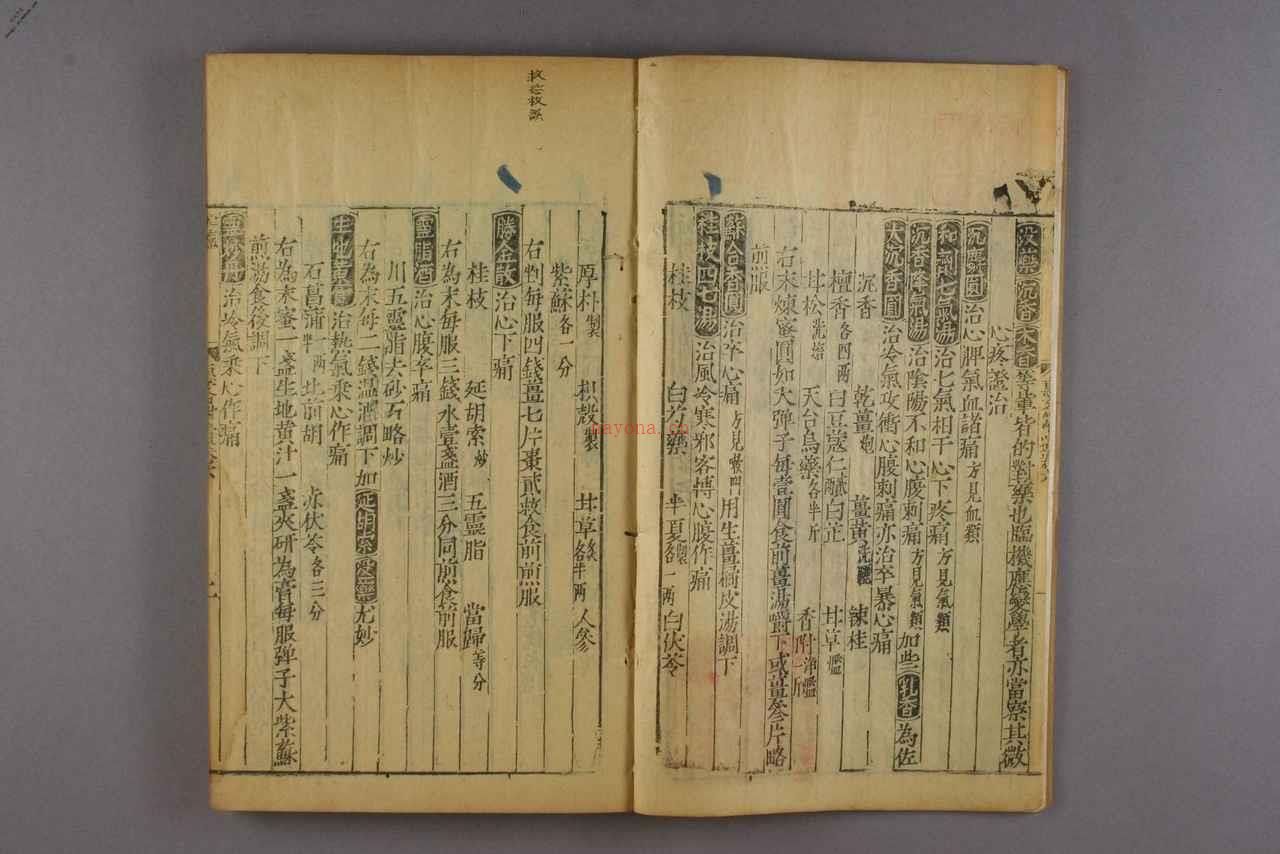 没藥沉香木香等輩皆的對藥也臨機應變學者亦當察其微
心疼證治
沉麝圓治心脾氣血諸痛方見血類
和劑七氣湯治七氣相干心下疼痛方見氣類
沉香降氣湯治陰陽不和心腹刺痛方見氣類加些乳香為佐
大沉香圓治冷氣攻衝心腹刺痛亦治卒暴心痛
沉香 乾薑炮 薑黃 辣桂
檀香各四兩 白豆蔻仁 白芷 甘草
甘松洗焙 天台烏藥各半斤 香附
右末煉蜜圓如大彈子每壹圓食前薑湯嚼下或薑叄片略
煎服
蘇合香圓治卒心痛方見喉門用生薑橘皮湯調下
桂枝四七湯治風冷寒邪客搏心腹作痛
桂枝 白芍藥 半夏製各一兩 白伏苓
厚朴製 枳殼製 甘草炙各半兩 人參
紫蘇各一分
右剉每服四錢薑七片棗貳枚食前煎服
勝金散治心下痛
桂枝 延胡索炒 五靈脂 當歸等分
右為末每服三錢水壹盞酒三分同煎食前服
靈脂酒治心腹卒痛
川五靈脂去砂石略炒
右為末每二錢溫酒調下加延胡索沒藥尤妙
生地黃膏治熱氣乘心作痛
石菖蒲半兩 北前胡 赤伏苓各三分
右為末蜜一盞生地黃汁一盞夾研為膏每服彈子大紫蘇
煎湯食後調下
治冷氣乘心作痛
nayona.cn